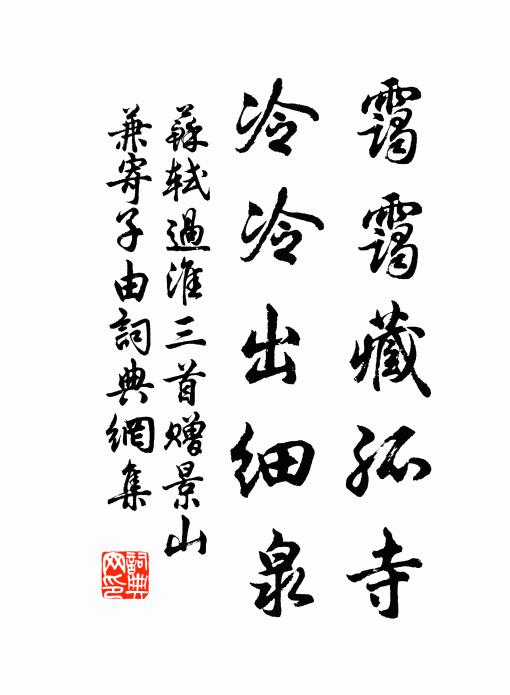 靄靄藏孤寺
冷冷出細泉
蘇軾過淮三首贈景山
兼寄子由詞典網集
詞典網印